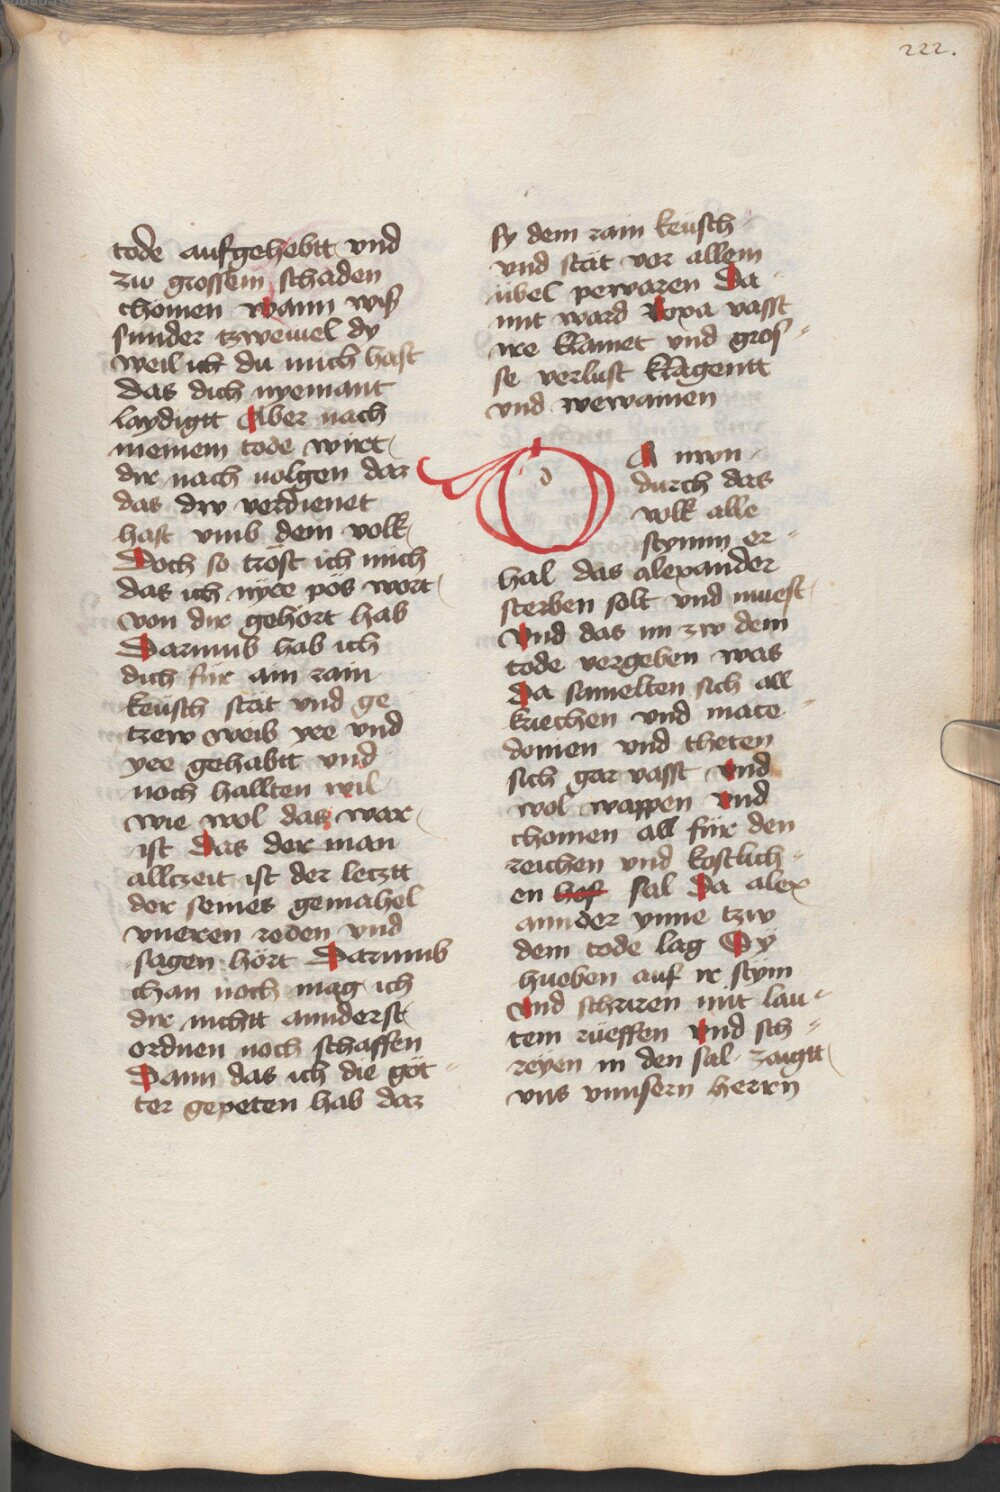 222.
tode aufgehebtt und
zw grossem schaden
chömen wann wiss
sunder tzweiuel dy
weil ich du mich hast
das dich nyemant
laydigtt Aber nach
meinem tode wirt
dir nach uolgen daz
das dw verdienet
hast vmb dem volk
Doch so tröst ich mich
das ich nyee pös wort
von dir gehört hab
Darumb hab ich
dich für ain rain
keüsch stät vnd ge
trew weib yee vnd
yee gehabtt vnd
noch hallten wil
wie wol das war
ist Das der man
alltzeit ist der letztt
der seines gemahel
vneren reden vnd
sagen hört Darumb
chan noch mag ich
dir nichtt annderst
ordnen noch schaffen
Dann das ich die göt
ter gepeten hab daz
sy dem rain keüsch
vnd stät vor allem
übel pewaren Da
mit ward Roxa vasst
ire klainet vnd gros
se verlust klagentt
vnd wewainen
D A nwn
durch das
volk alle
stymm er
hal das alexander
sterben solt vnd muest
Vnd das im zw dem
tode vergeben was
Da samelten sich all
kriechen vnd mace
donien vnd theten
sich gar vasst vnd
wol wappen vnd
chomen all für den
reichen vnd kostlich
en hof sal Da alex
annder ynne tzw
dem tode lag Dÿ
hueben auf ir stym
Vnd schriren mit lau
tem rüeffen vnd sch
reyen in den sal zaigtt
vns vnnsern herrn